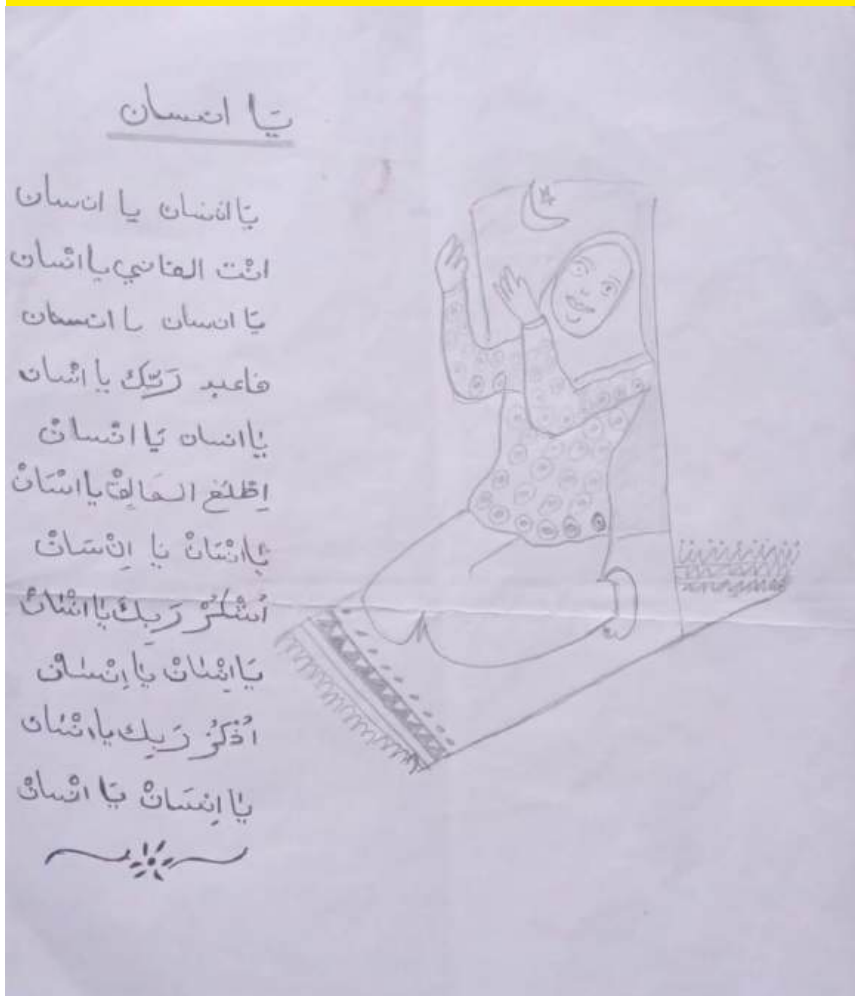 يَا انسان
يَا انسان يا انسان
انْت الفاني يا انْسان
يَا انسان يا انسان
فاعبد رَبّك يا انْسان
يٰا انسان يَا انْسانْ
اِطْلَعْ الخَالِقْ يا انْسَانْ
يٰا انْسَانْ يَا اِنْسَانْ
اُشْكُرْ رَبِكَ يٰا انْسٰانْ
يَا اِنْسٰانْ يٰا اِنْسٰانْ
اُذْكُرْ رَبِك يا انْسٰان
يٰا اِنسَانْ يَا انْسانْ